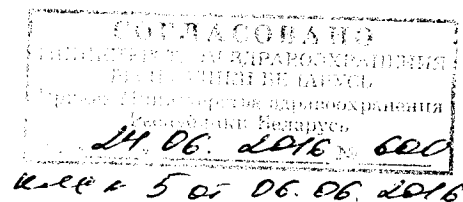 СОГЛАСОВАНО
МИНИСТЕРСТВОМ ЗДРАВООХРАНЕНИЯ
РЕСПУБЛИКИ БЕЛАРУСЬ
Приказ Министерства здравоохранения
Республики Беларусь
24 06. 2016 № 600
5 от 06.06.2016